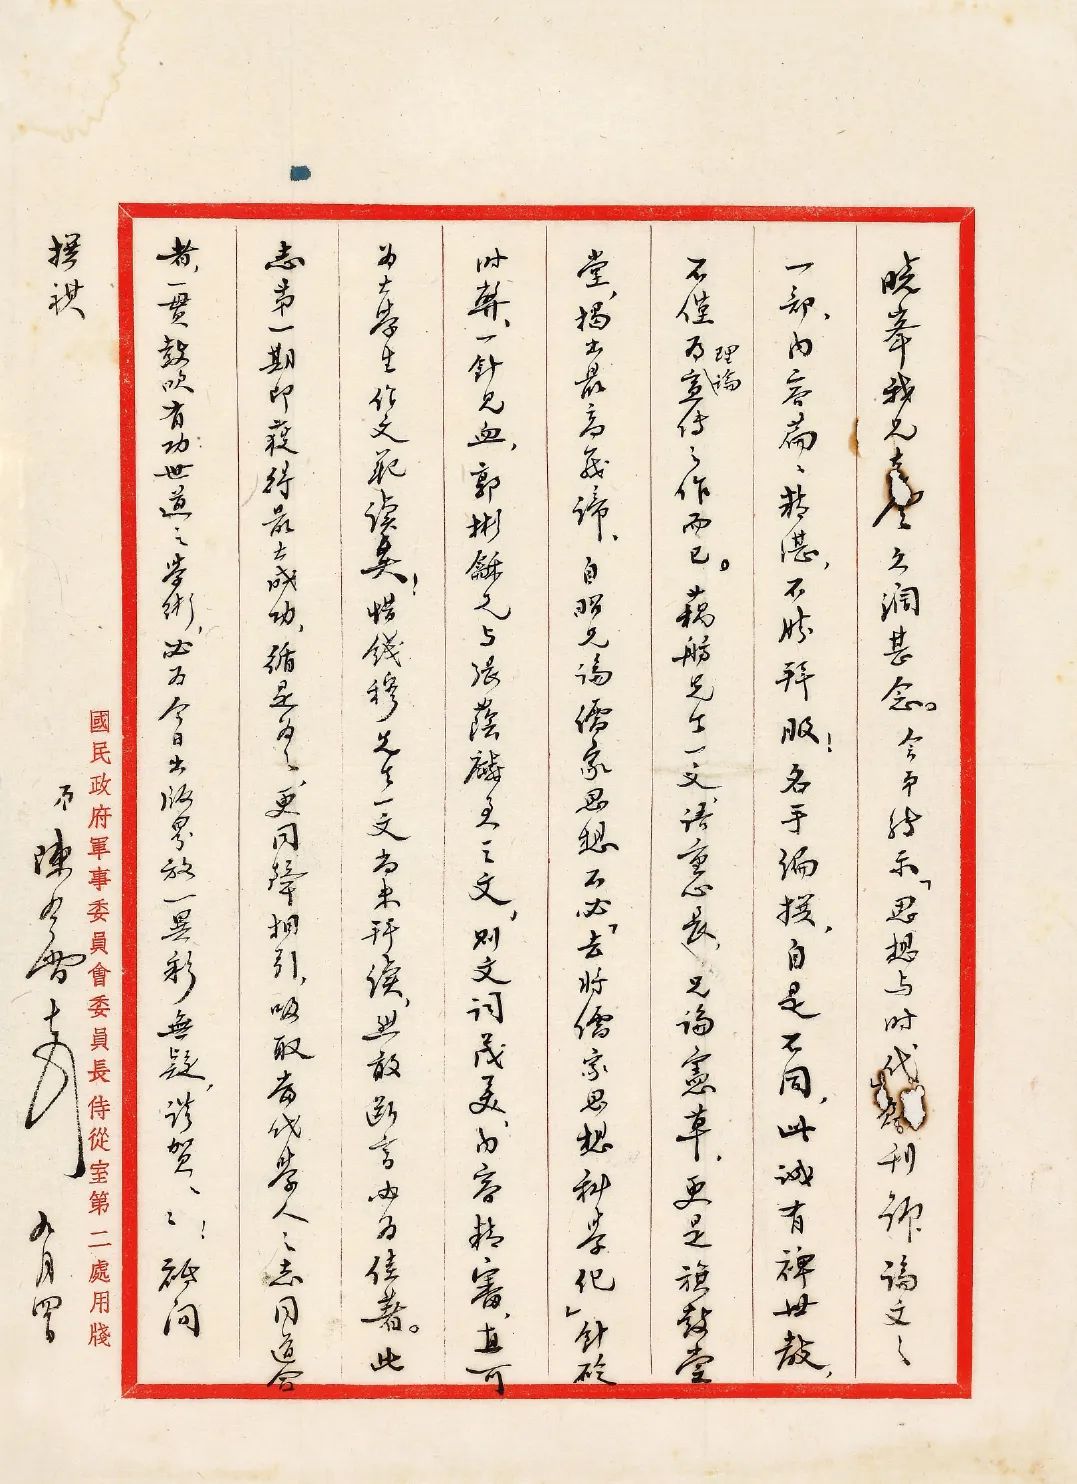 曉峯我兄
久濶甚念。今由 轉示「思想与时代」刊 論文之
一部、内容篇、精湛，不勝拜服！名手編撰，自是不同，此誠有裨世教，
不僅为理論宣傳之作而已。藕舫先生一文，语重心長，兄論憲草，更是旗鼓堂
堂，揭出最高義諦、自昭兄論儒家思想不必「去將儒家思想科學化」針砭
时弊、一針見血，郭彬龢兄与張蔭麟兄之文，則文词茂美，内容精審、直可
为大學生作文範讀矣！惜錢穆先生一文尚未拜讀，然敢断言必为佳著。此
志第一期即獲得最大成功，循是为之、更同聲相引，吸取當代學人之志同道合
者，一貫鼓吹有功世道之學術，必为今日出版界放一異彩無疑，謹賀、、！祗问
撰祺
弟陳 九月四日
國民政府軍事委員會委員長侍從室第二處用牋